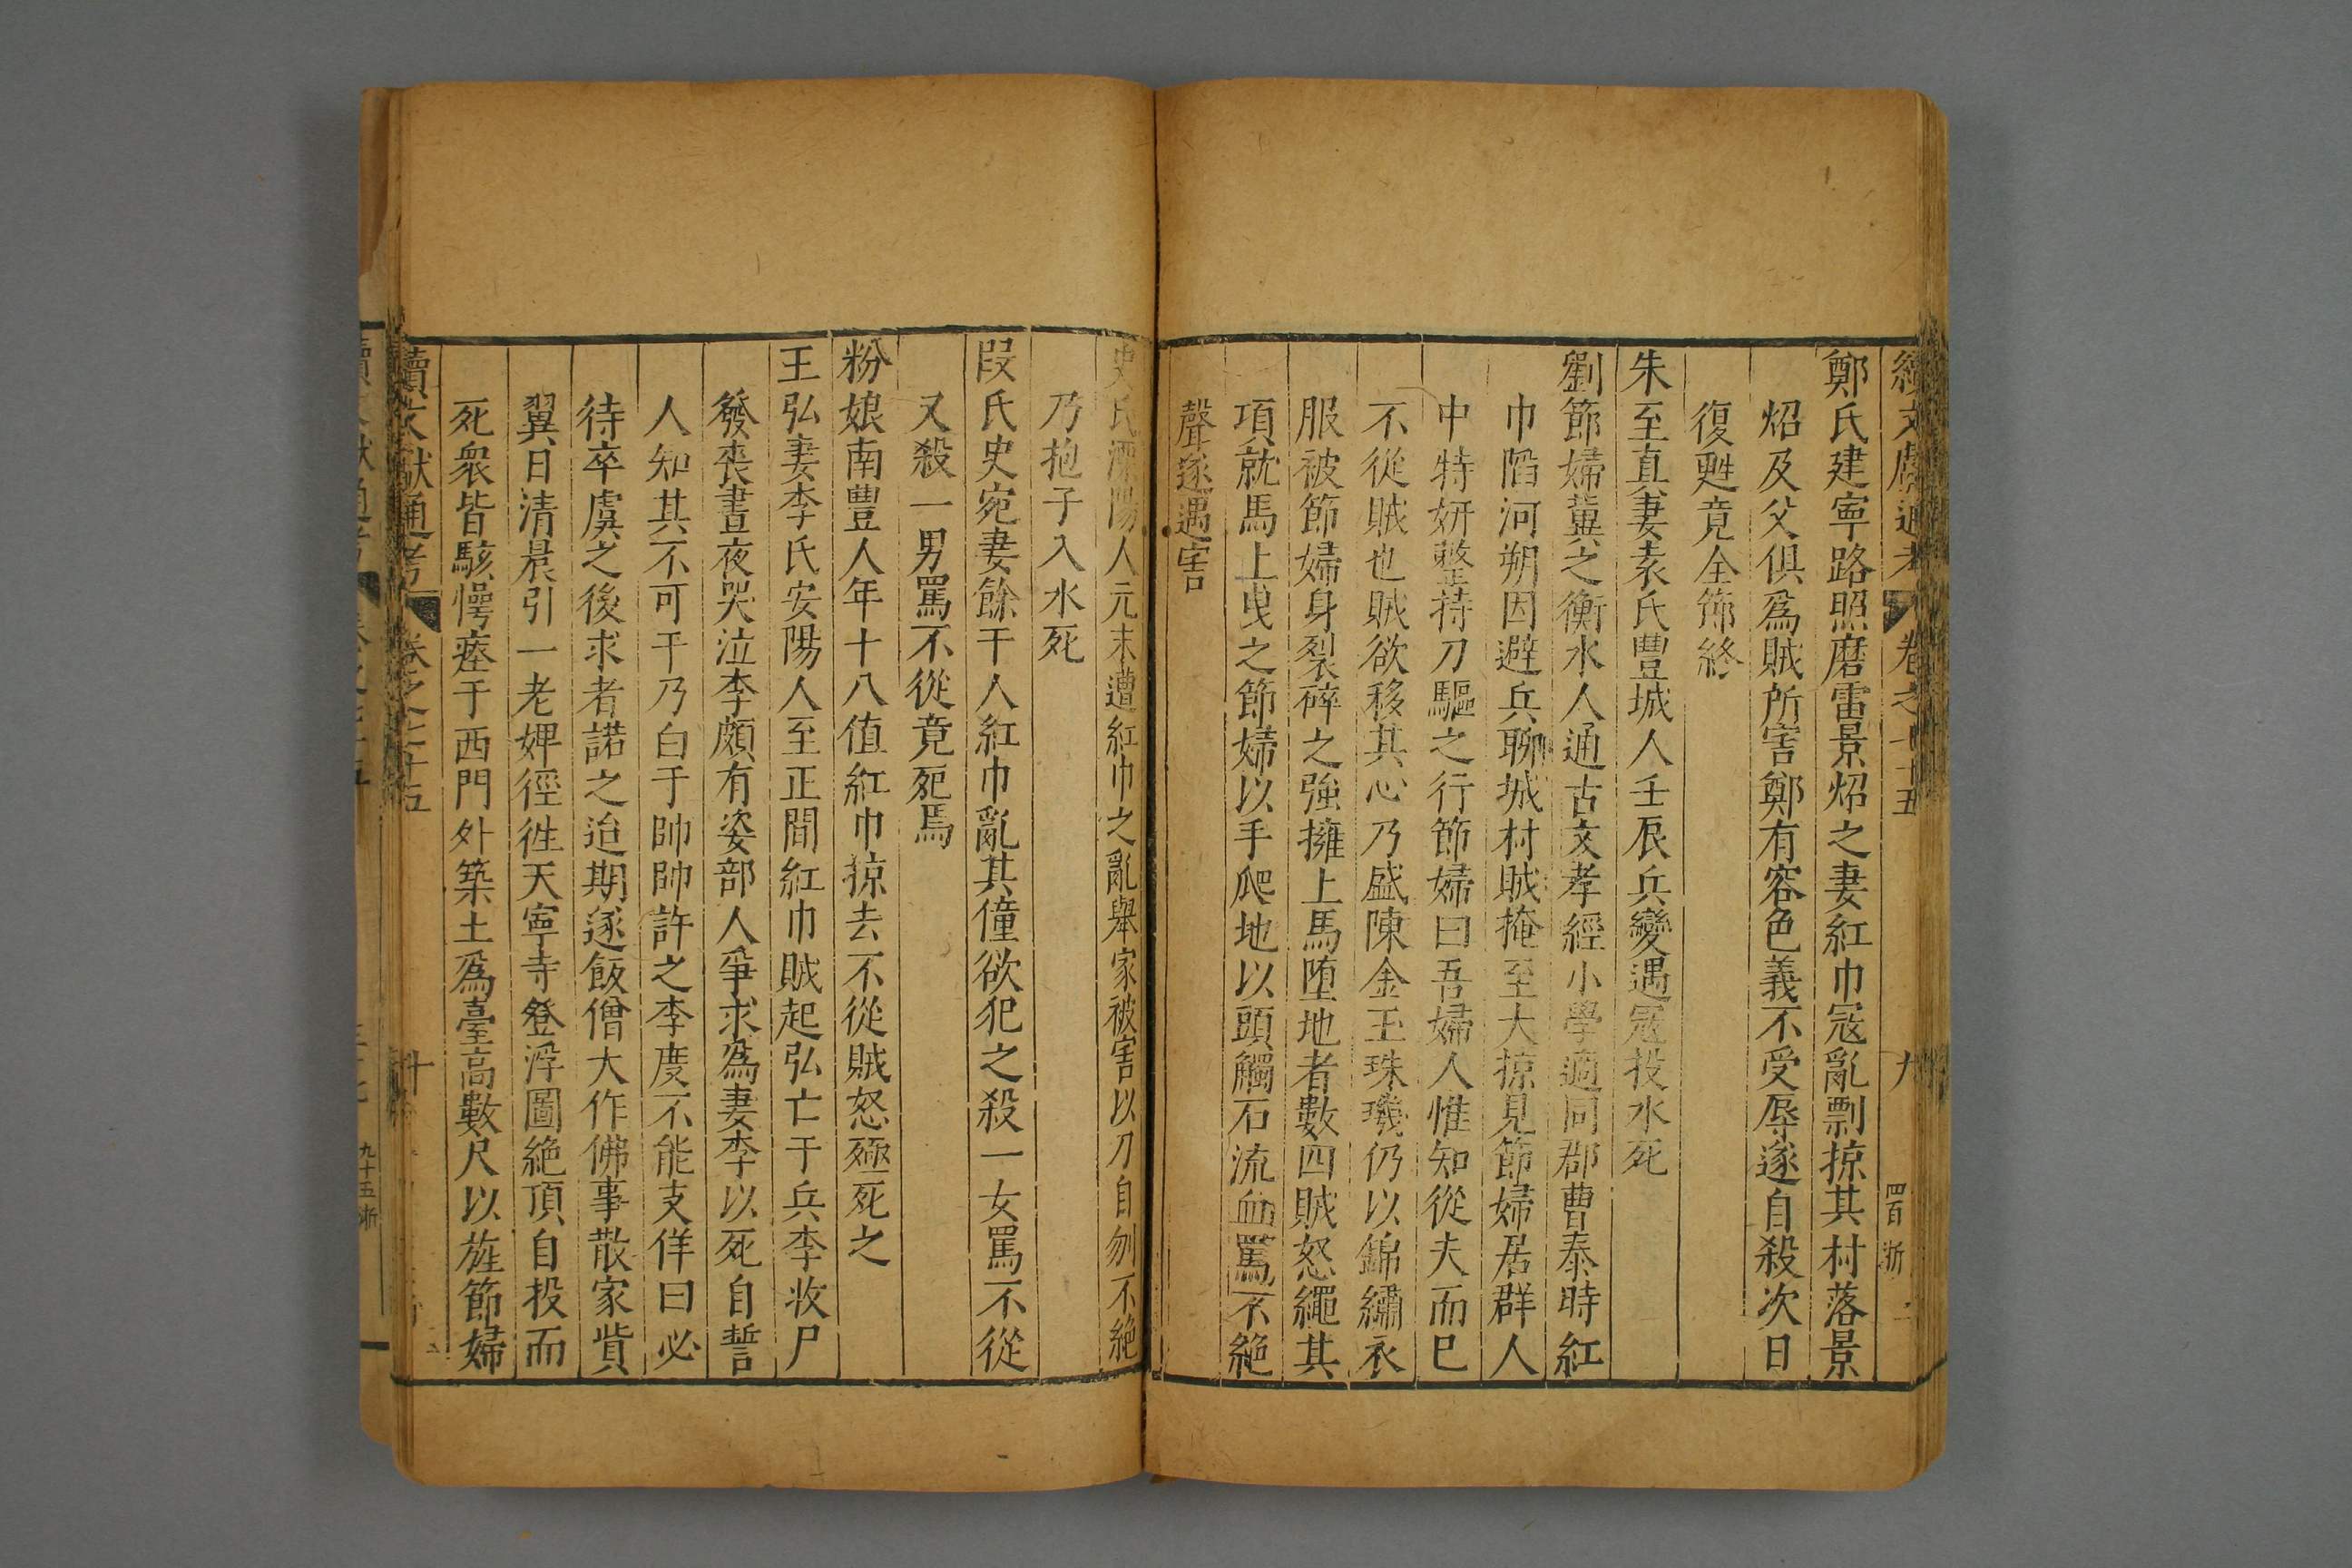 續文獻通考 卷之七十五 九 四百 浙
鄭氏建寧路照磨雷景炤之妻紅巾寇亂剽掠其村落景
炤及父俱爲賊所害鄭有容色義不受辱遂自殺次日
復甦竟全節終
朱至真妻袁氏豐城人壬辰兵變遇寇投水死
劉節婦冀之衡水人通古文孝經小學適同郡曹泰時紅
巾陷河朔因避兵聊城村賊掩至大掠見節婦居群人
中特妍整持刀驅之行節婦曰吾婦人惟知從夫而已
不從賊也賊欲移其心乃盛陳金玉珠璣仍以錦繡衣
服被節婦身裂碎之強擁上馬墮地者數四賊怒繩其
項就馬上曳之節婦以手爬地以頭觸石流血罵不絕
聲遂遇害
史氏溧陽人元末遭紅巾之亂舉家被害以刀自刎不絕
乃抱子入水死
段氏史宛妻餘干人紅巾亂其僮欲犯之殺一女罵不從
又殺一男罵不從竟死焉
粉娘南豐人年十八值紅巾掠去不從賊怒殛死之
王弘妻李氏安陽人至正間紅巾賊起弘亡于兵李收尸
發喪晝夜哭泣李頗有姿部人爭求爲妻李以死自誓
人知其不可干乃白于帥帥許之李度不能支佯曰必
待卒虞之後求者諾之迨期遂飯僧大作佛事散家貲
翼日清晨引一老婢徑徃天寧寺登浮圖絕頂自投而
死衆皆駭愕瘞于西門外築土爲臺高數尺以旌節婦
續文獻通考 卷之七十五 十
九十五 浙